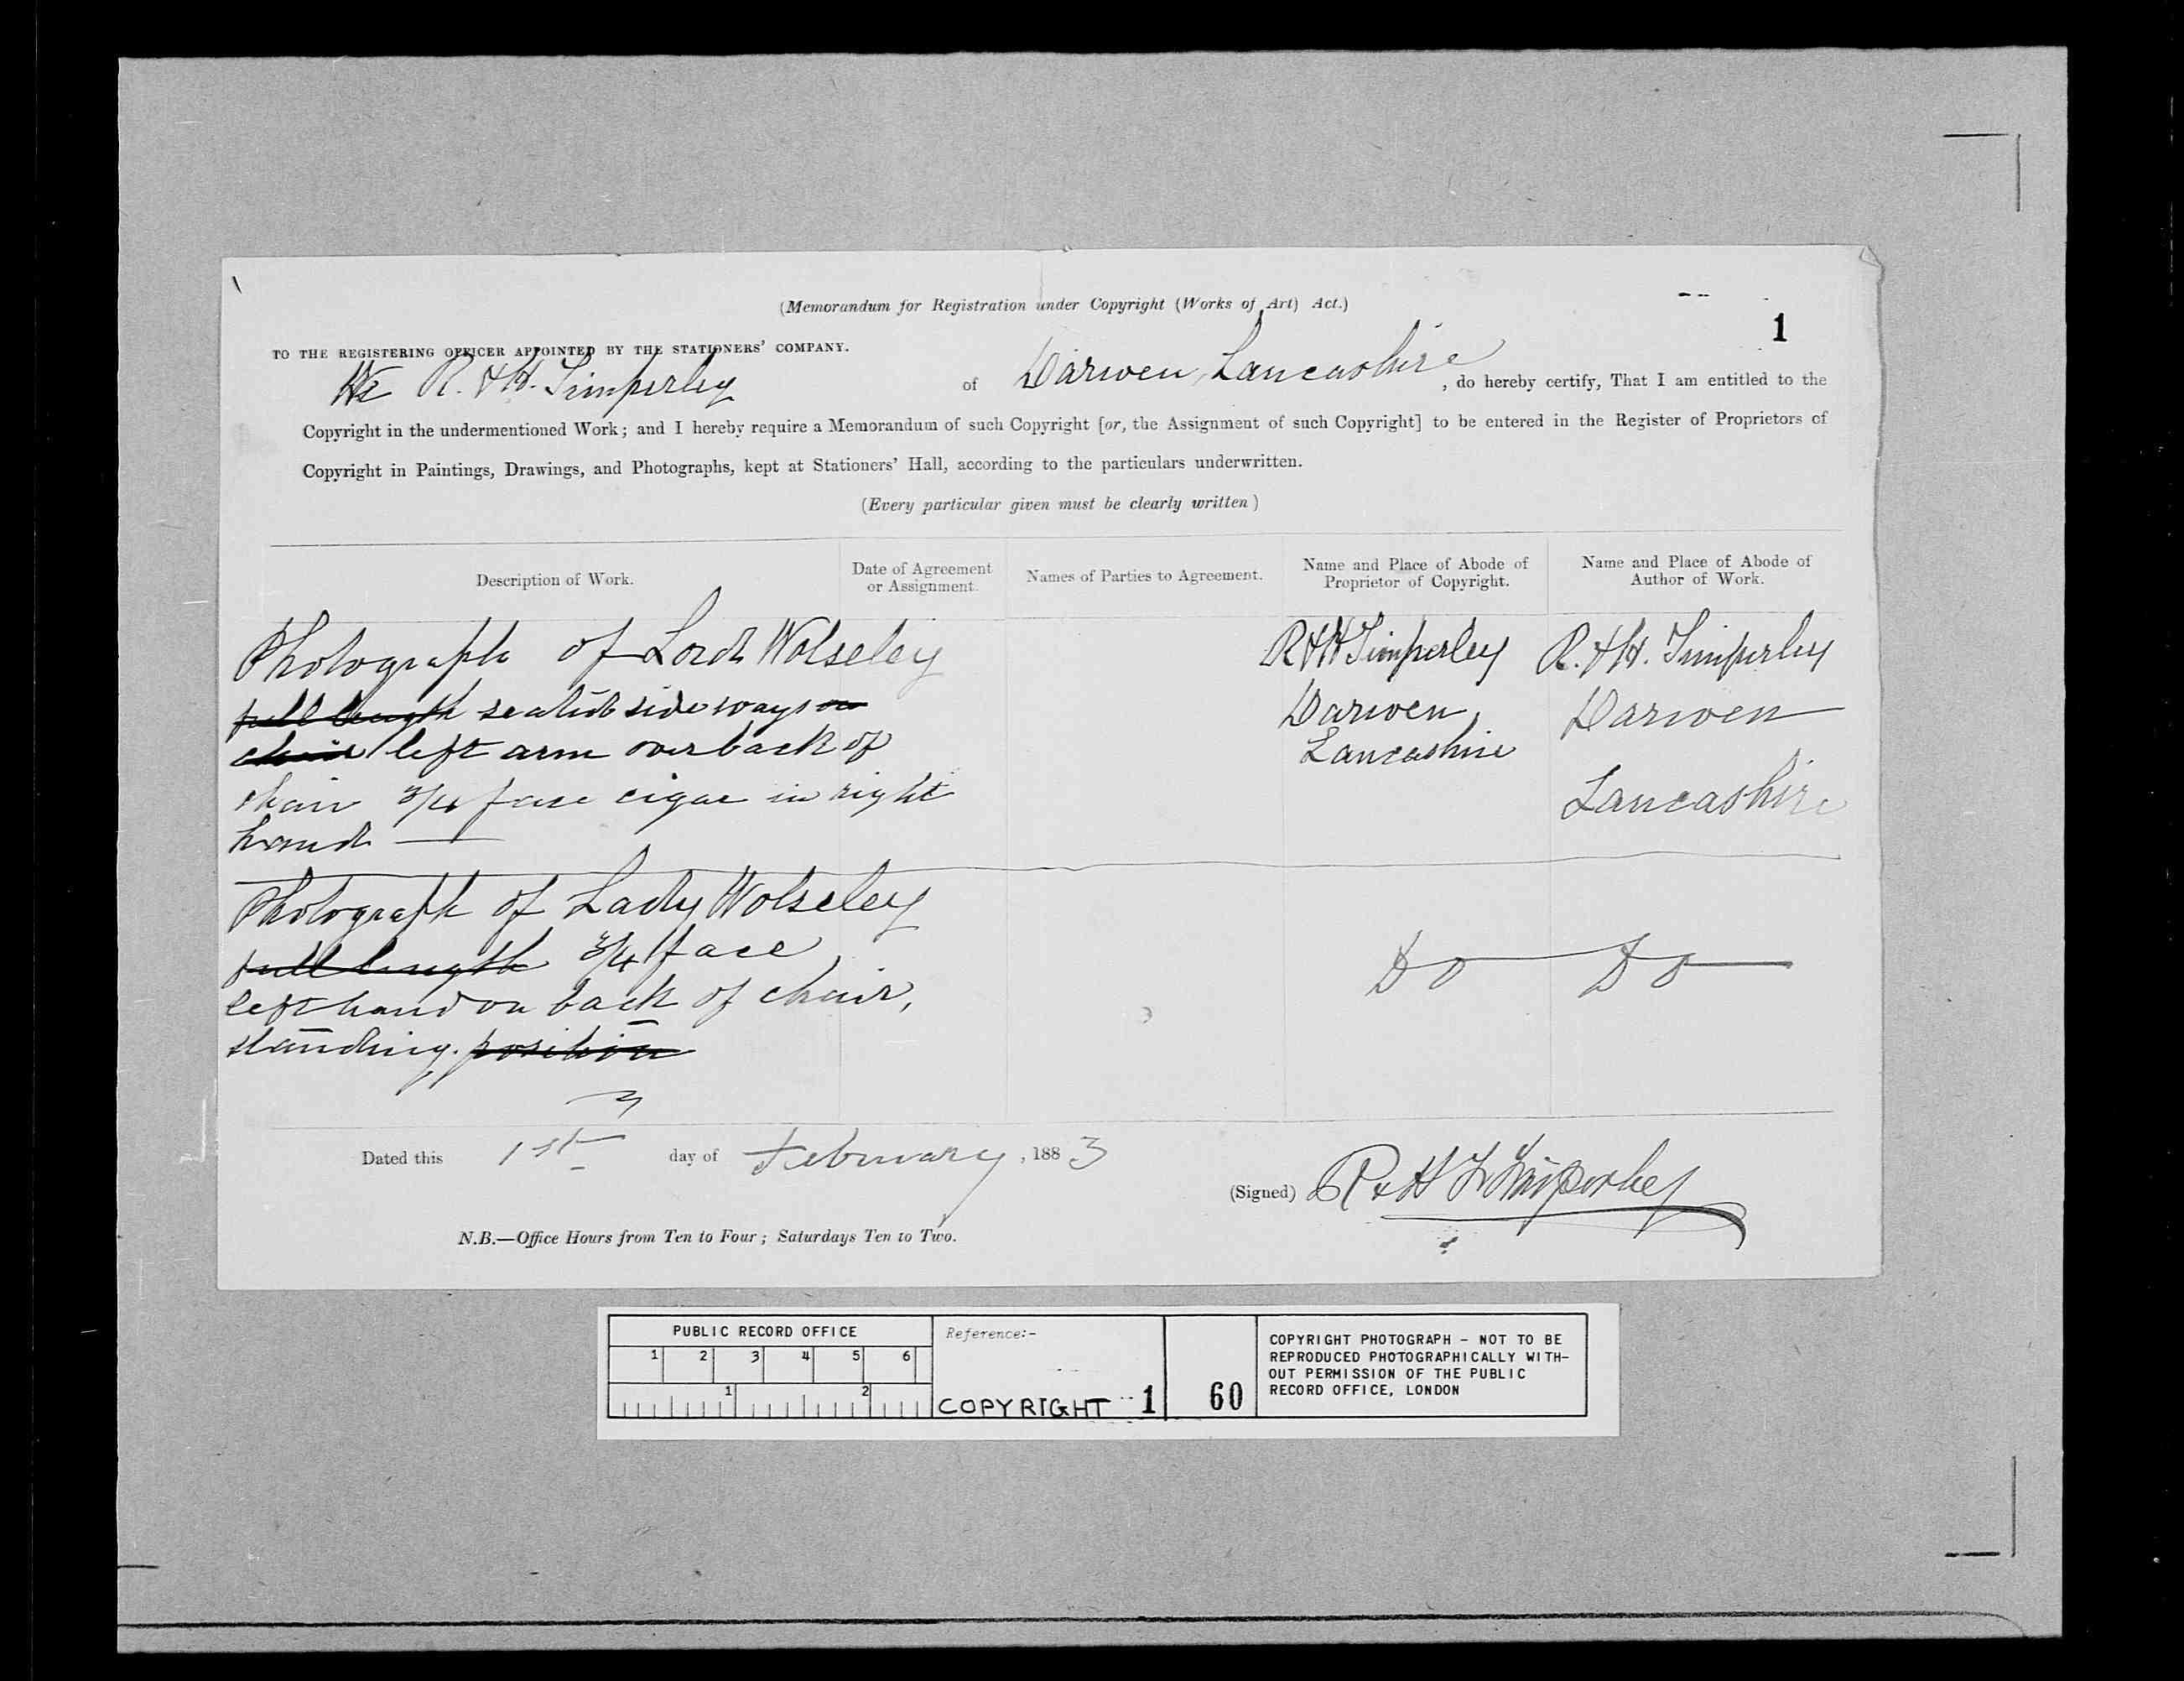 (Memorandum for Registration under Copyright (Works of Art) Act.)
1
TO THE REGISTERING OFFICER APPOINTED BY THE STATIONERS' COMPANY.
We R. & H. Timperley of Darwen, Lancashire, do hereby certify, That I am entitled to the
Copyright in the undermentioned Work; and I hereby require a Memorandum of such Copyright [or, the Assignment of such Copyright] to be entered in the Register of Proprietors of
Copyright in Paintings, Drawings, and Photographs, kept at Stationers' Hall, according to the particulars underwritten.
(Every particular given must be clearly written)
Description of Work.
Date of Agreement
or Assignment.
Names of Parties to Agreement.
Name and Place of Abode of
Proprietor of Copyright.
Name and Place of Abode of
Author of Work.
Photograph of Lord Wolseley
full length seated sideways on
chair left arm over back of
chair 3/4 face cigar in right
hand
R & H Timperley
Darwen,
Lancashire
R. & H. Timperley
Darwen
Lancashire
Photograph of Lady Wolseley
full length 3/4 face
left hand on back of chair,
standing. position
Do Do
Dated this 1st day of February, 1883
(Signed) R & H Timperley
N.B.—Office Hours from Ten to Four; Saturdays Ten to Two.
PUBLIC RECORD OFFICE
1 2 3 4 5 6
1 2
Reference:-
COPYRIGHT 1
60
COPYRIGHT PHOTOGRAPH - NOT TO BE
REPRODUCED PHOTOGRAPHICALLY WITH-
OUT PERMISSION OF THE PUBLIC
RECORD OFFICE, LONDON